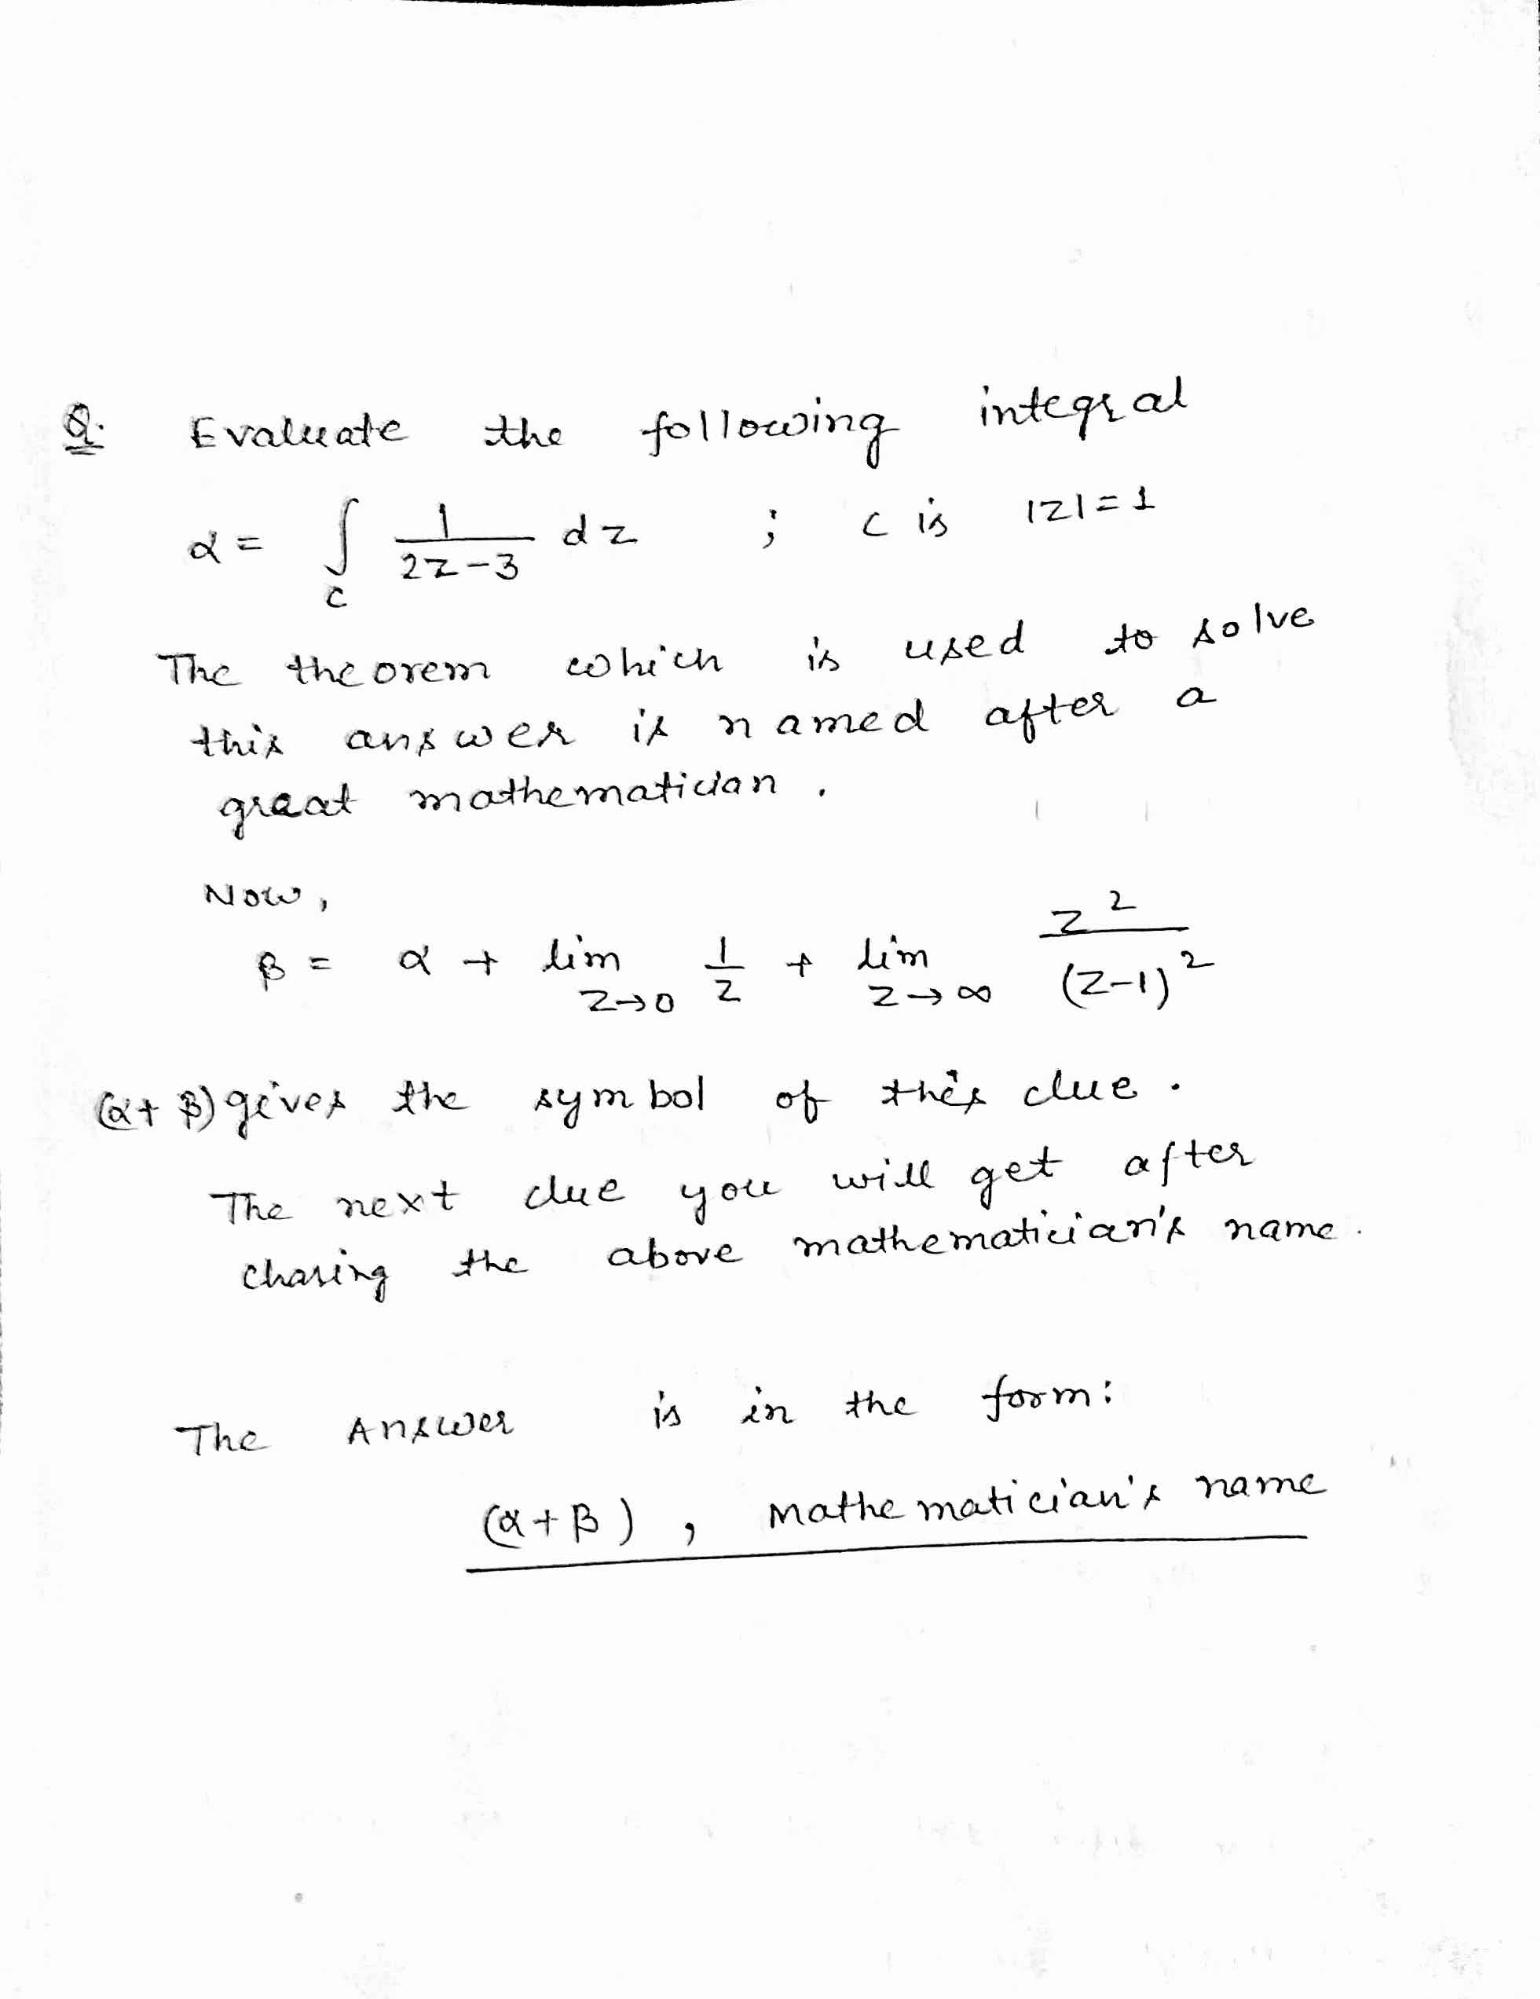 Q. Evaluate the following integral
α = ∫_C 1/(2z-3) dz ; C is |z|=1
The theorem which is used to solve
this answer is named after a
great mathematician.
Now,
β = α + lim_{z→0} 1/z + lim_{z→∞} z²/(z-1)²
(α+β) gives the symbol of this clue.
The next clue you will get after
chasing the above mathematician's name.
The Answer is in the form:
(α+β), Mathematician's name